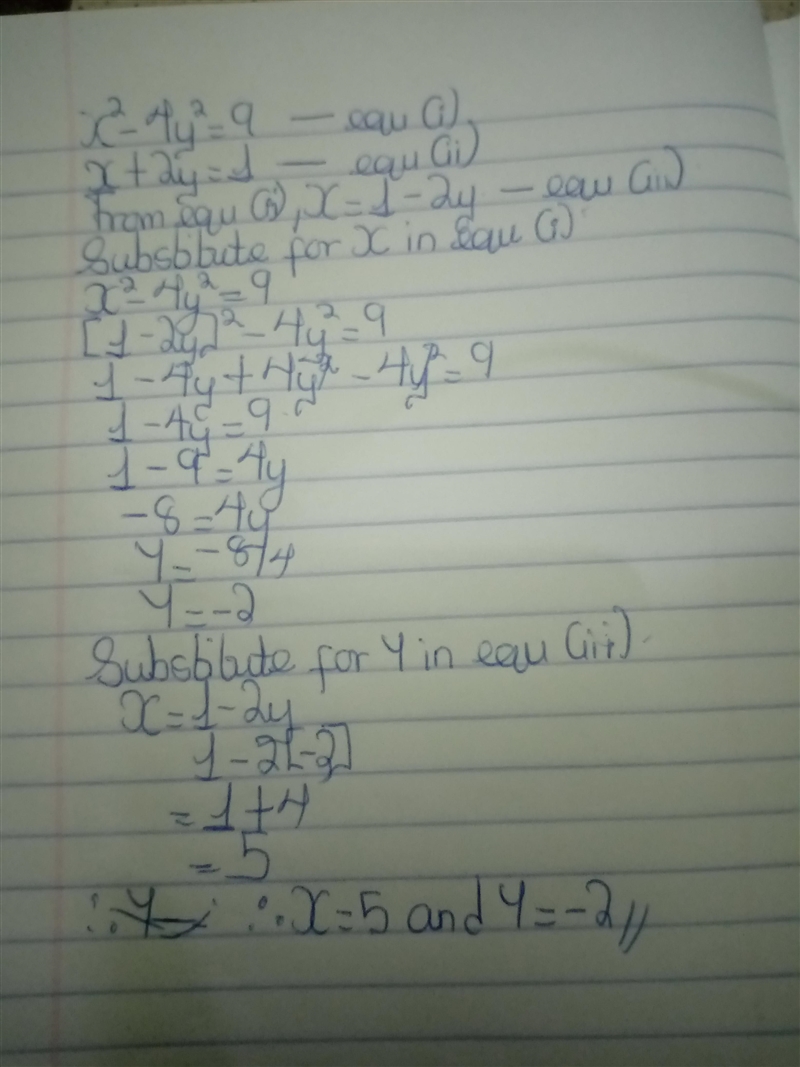 x² - 4y² = 9 — equ (i)
x + 2y = 1 — equ (ii)
from equ (ii), x = 1 - 2y — equ (iii)
Substitute for x in equ (i)
x² - 4y² = 9
[1 - 2y]² - 4y² = 9
1 - 4y + 4y² - 4y² = 9
1 - 4y = 9
1 - 9 = 4y
-8 = 4y
y = -8/4
y = -2
Substitute for y in equ (iii).
x = 1 - 2y
1 - 2[-2]
= 1 + 4
= 5
∴ y ∴ x = 5 and y = -2 //